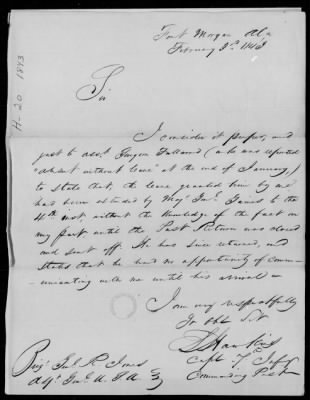 H-20 1843
Fort Morgan Ala
February 3d 1843
Sir
I consider it proper, and
just to asst Surgeon Holland (who was reported
"absent without leave" at the end of January,)
to state that, the leave granted him by me
had been extended by Maj Gnl Gaines to the
4th inst, without the knowledge of the fact on
my part until the Post Return was closed
and sent off. He has since returned, and
states that he had no opportunity of comm-
unicating with me until his arrival
I am very respectfully
Yr obt Svt
Hawkins
Capt 7 Infy
Commanding Post
Brig Gnl R Jones
Adjt Gnl U.S.A.